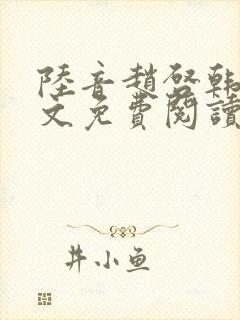 陸音趙啓韩
文免費閱讀
井小鱼